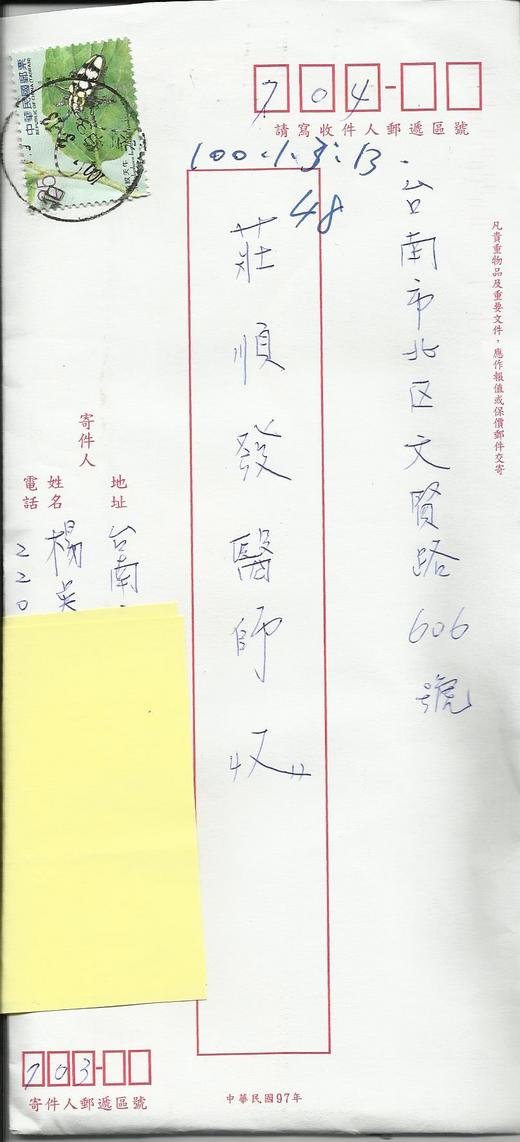 中華民國郵票
REPUBLIC OF CHINA (TAIWAN)
704
請寫收件人郵遞區號
100.1.3:13.
48
凡貴重物品及重要文件，應作報值或保價郵件交寄
台南市北区文賢路606號
莊順發醫師收
寄件人
地址
台南
姓名
楊
電話
220
703
寄件人郵遞區號
中華民國97年